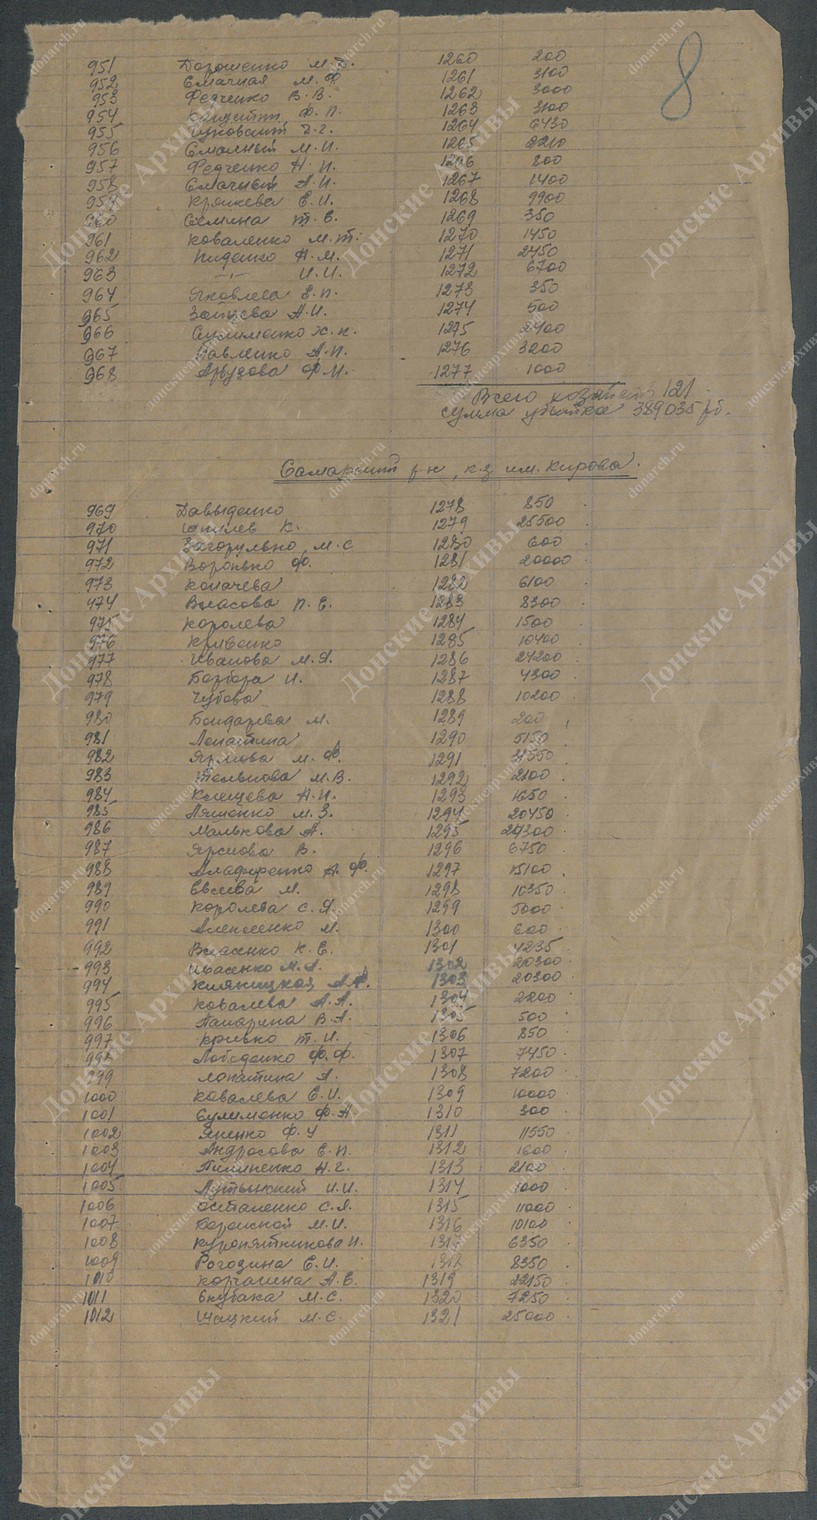 8
951 Дорошенко М. 1260 200
952 Смачная М.Ф. 1261 3100
953 Федченко В.В. 1262 3000
954 Ф.П. 1263 3100
955 1264 6430
956 М.И. 1265 2210
957 Федченко Н.И. 1266 200
958 Смачный А.И. 1267 1400
959 Е.И. 1268 9900
960 Семина Т.Е. 1269 350
961 Коваленко М.Т. 1270 1450
962 Н.М. 1271 2450
963 -"- И.И. 1272 6700
964 Яковлева Е.П. 1273 350
965 Зайцева А.И. 1274 500
966 Сулименко Х.К. 1275 2400
967 Павленко А.П. 1276 3200
968 Арбузова Ф.М. 1277 1000
Всего хозяйств 121
Сумма убытка 389035 рб.
Самарский р-н, к-з им. Кирова.
969 Давыденко 1278 850
970 К. 1279 25500
971 Загорулько М.С 1280 600
972 Воронько Ф. 1281 20000
973 Копачева 1282 6100
974 Власова П.Е. 1283 8300
975 Королева 1284 1500
976 Кривенко 1285 10400
977 Иванова М.Я. 1286 24200
978 И. 1287 4300
979 Чубова 1288 10200
980 Бондарева М. 1289 200
981 Лопатина 1290 5150
982 М.Ф. 1291
983 М.В. 1292 2100
984 Клещева Н.И. 1293 1650
985 Ляшенко М.З. 1294 20450
986 Малькова А. 1295 24300
987 В. 1296 6750
988 А.Ф. 1297 15100
989 Евсеева М. 1298 10350
990 Королева С.Я. 1299 5000
991 Алексеенко М. 1300 600
992 Власенко К.Е. 1301 4235
993 Ивасенко М.А. 1302 20300
994 Кляницкая 1303 20300
995 Ковалева А.А. 1304 2200
996 В.А. 1305 500
997 Кривко Т.И. 1306 850
998 Лебеденко Ф.Ф. 1307 7450
999 Лопатина А. 1308 7200
1000 Ковалева Е.И. 1309 10000
1001 Сулименко Ф.А 1310 300
1002 Яненко Ф.У 1311 11550
1003 Андросова Е.П. 1312 1600
1004 Пилипенко Н.Г. 1313 2100
1005 И.И. 1314 1000
1006 Остапенко С.Я. 1315 11000
1007 М.И. 1316 10100
1008 Куропятникова И. 1317 6350
1009 Рогозина Е.И. 1318 8350
1010 А.Е. 1319 22150
1011 М.С. 1320 7250
1012 Шацкий М.С. 1321 25000
Донские Архивы
donarch.ru